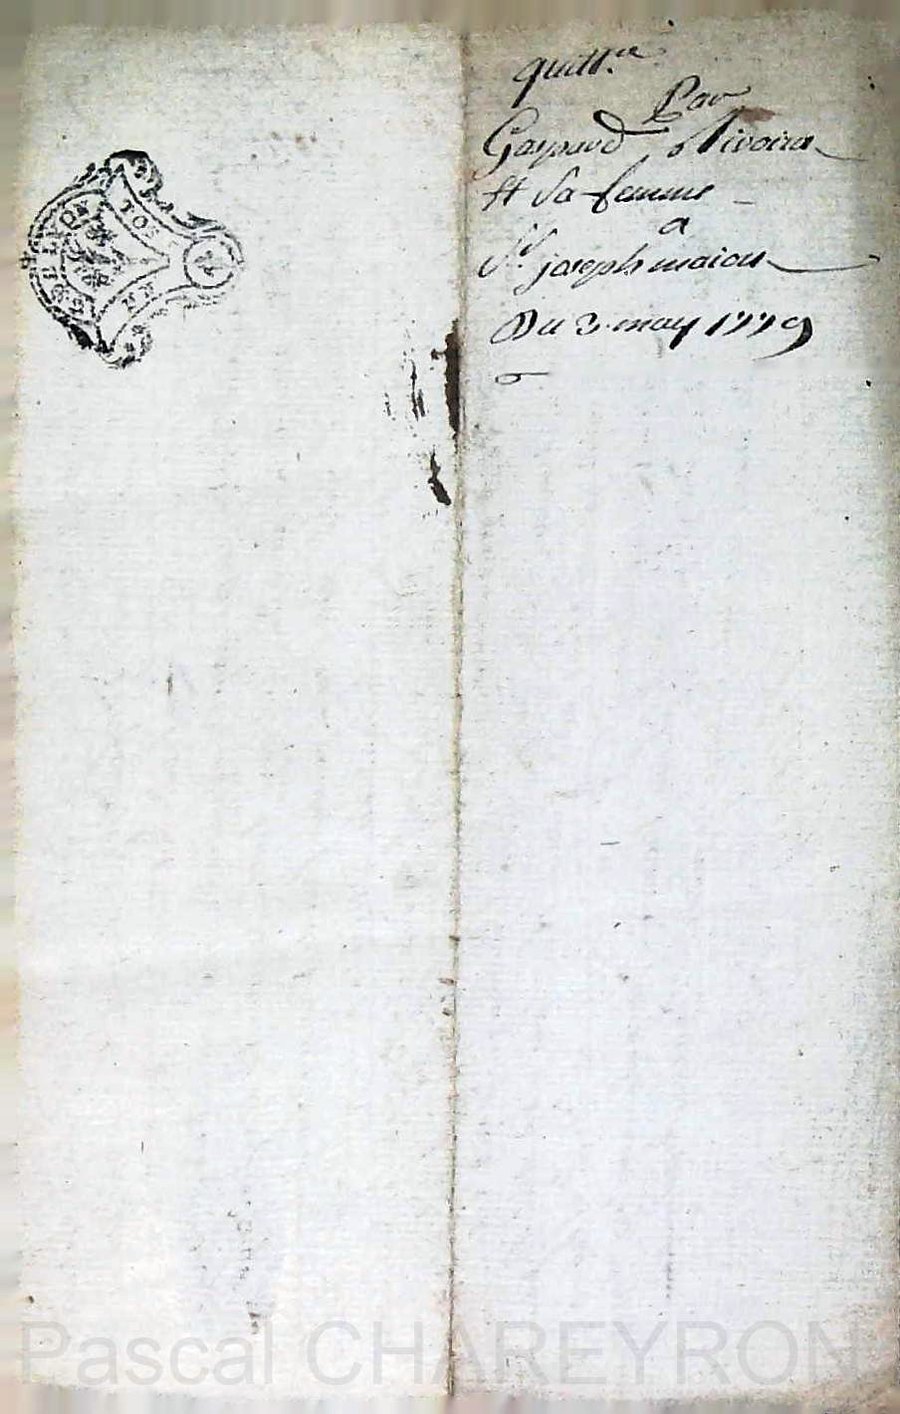 quitt.ce
Par
Gaspard Rivoire
et sa femme
a
Sr joseph maion
Du 3 may 1779
GEN. DE LYON
Pascal CHAREYRON